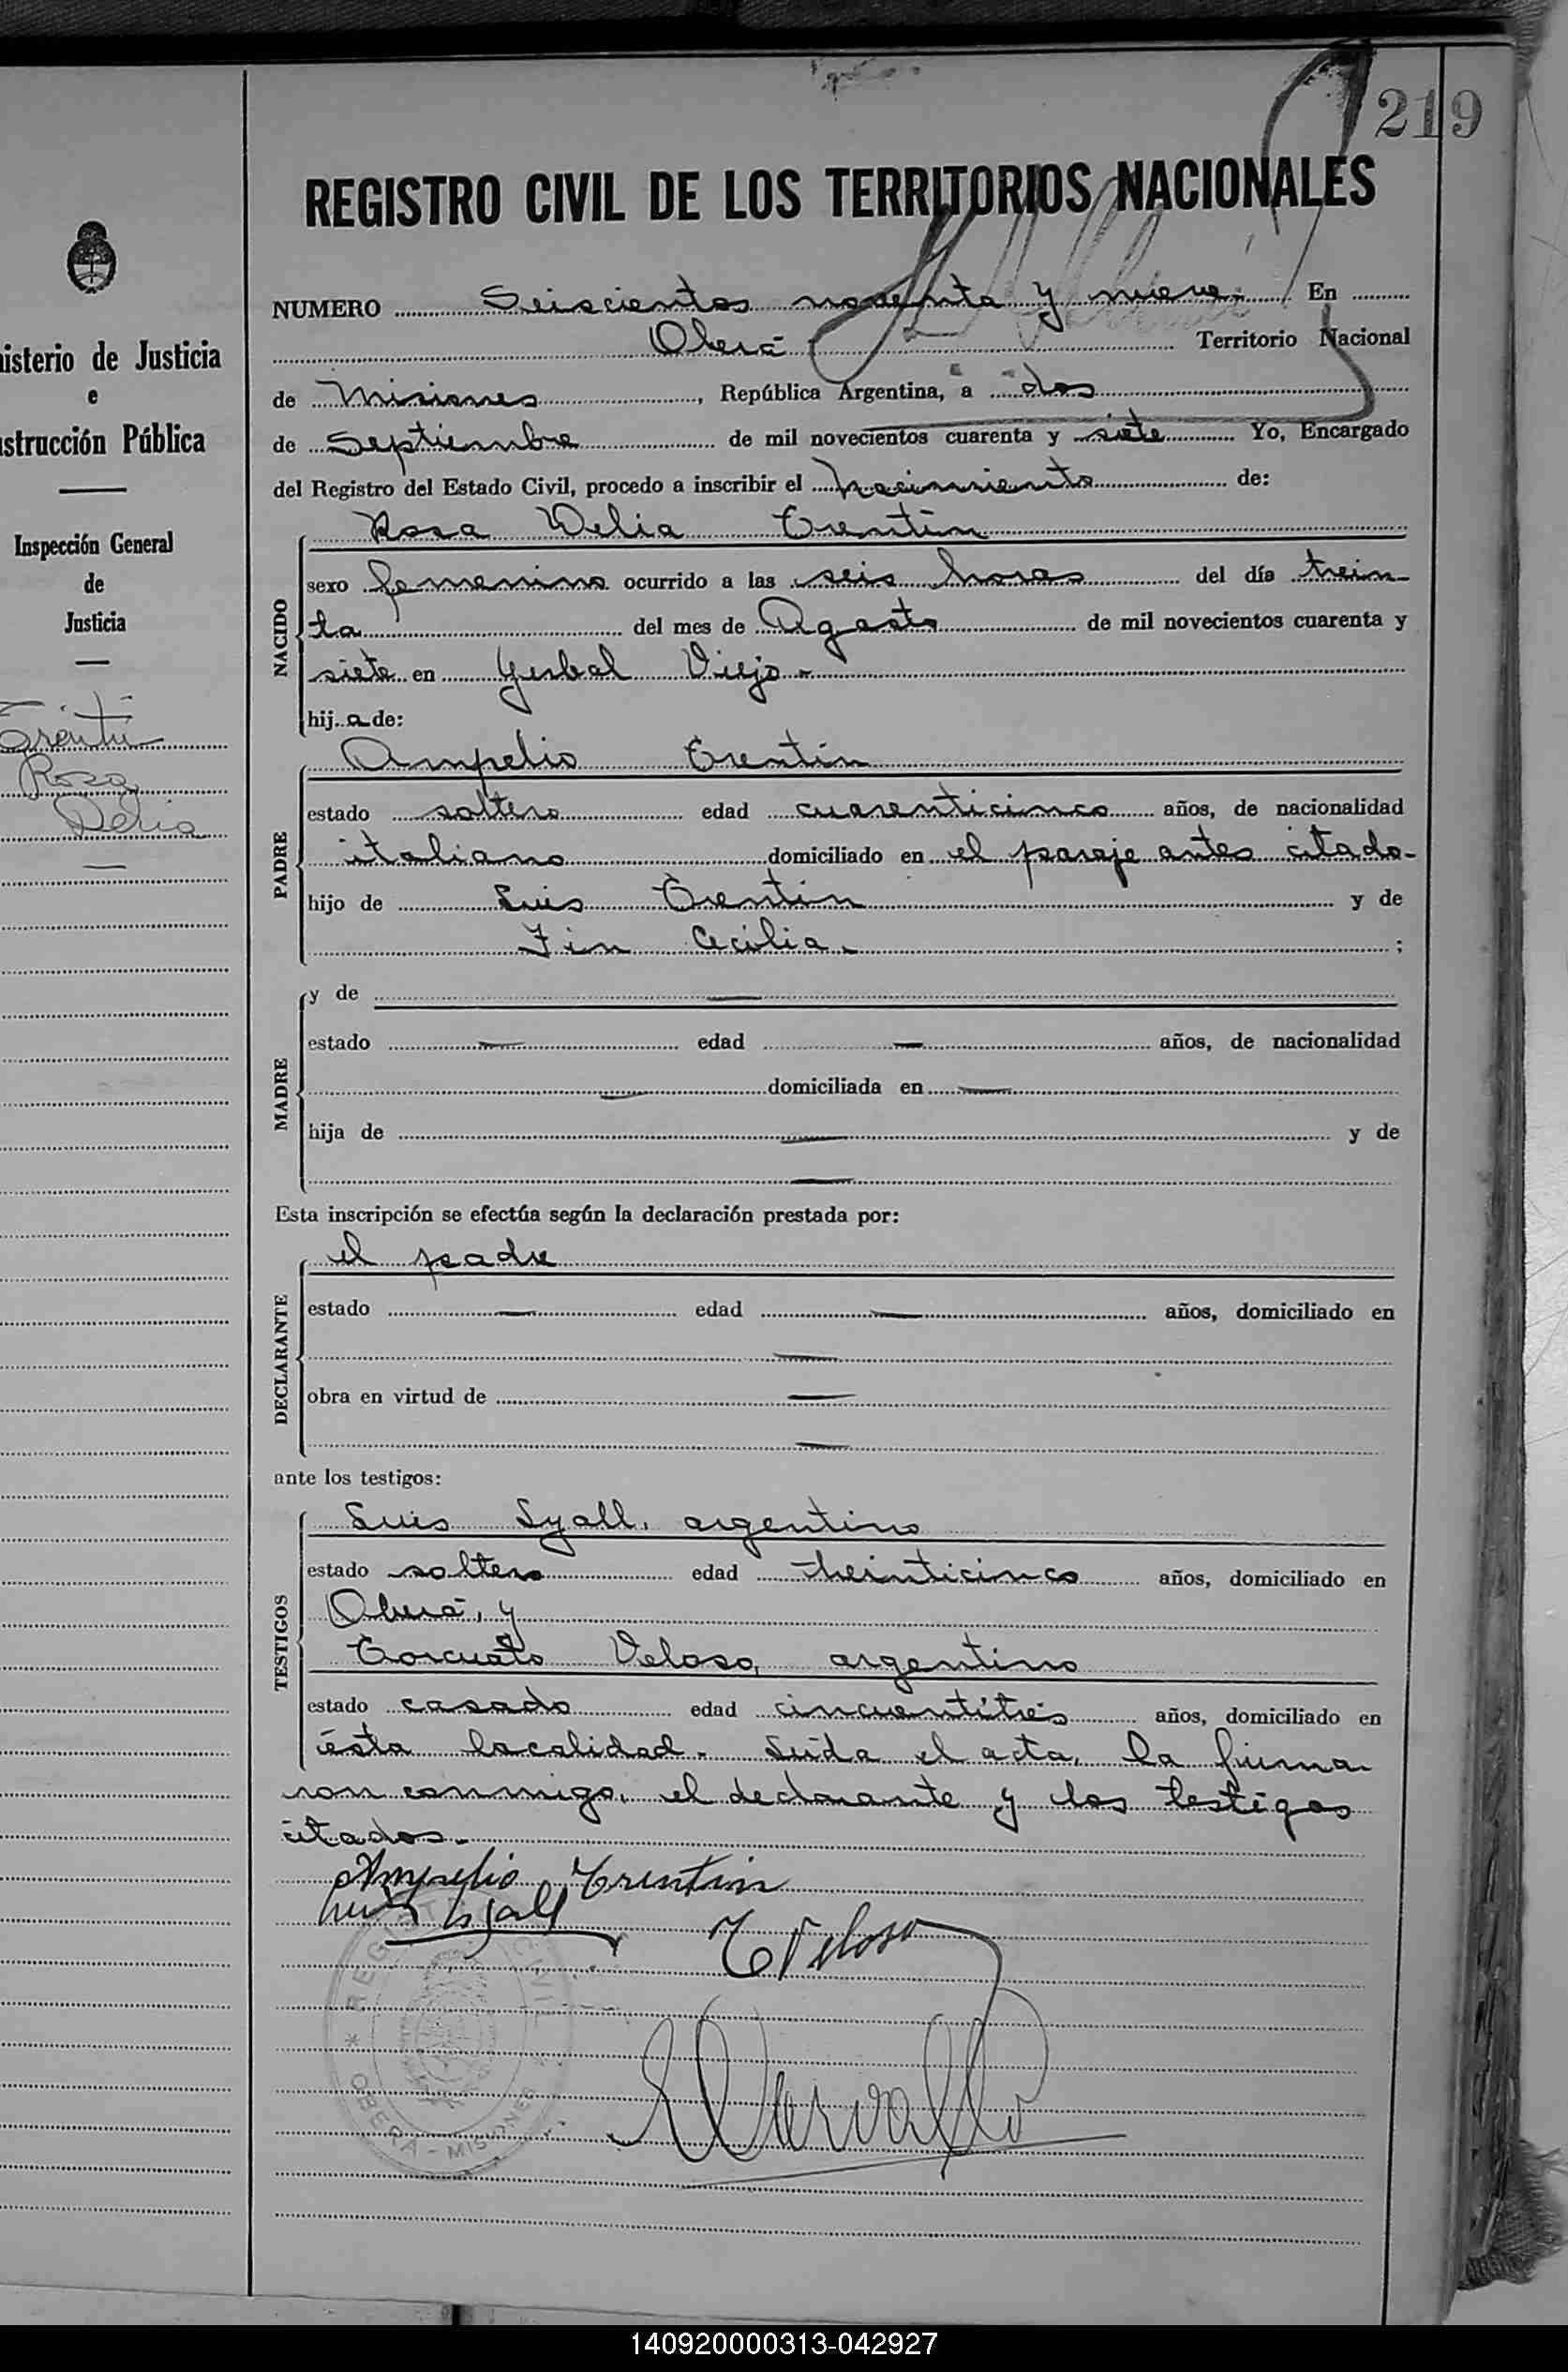 219
REGISTRO CIVIL DE LOS TERRITORIOS NACIONALES
NUMERO Seiscientos noventa y nueve.- En
Oberá Territorio Nacional
de Misiones, República Argentina, a dos
de Septiembre de mil novecientos cuarenta y siete Yo, Encargado
del Registro del Estado Civil, procedo a inscribir el nacimiento de:
NACIDO
Rosa Delia Trentin
sexo femenino ocurrido a las seis horas del día trein-
ta del mes de Agosto de mil novecientos cuarenta y
siete en Yerbal Viejo-
hij a de:
PADRE
Ampelio Trentin
estado soltero edad cuarenticinco años, de nacionalidad
italiano domiciliado en el paraje antes citado-
hijo de Luis Trentin y de
Fin Cecilia. ;
MADRE
y de —
estado — edad — años, de nacionalidad
— domiciliada en —
hija de — y de
—
Esta inscripción se efectúa según la declaración prestada por:
DECLARANTE
el padre
estado — edad — años, domiciliado en
—
obra en virtud de —
—
ante los testigos:
TESTIGOS
Luis Lyall, argentino
estado soltero edad treinticinco años, domiciliado en
Oberá, y
Torcuato Veloso, argentino
estado casado edad cincuentitrés años, domiciliado en
ésta localidad.- Leída el acta, la firma-
ron conmigo, el declarante y los testigos
citados.-
Ampelio Trentin
Luis Lyall
T Veloso
REGISTRO CIVIL
* OBERA - MISIONES *
nisterio de Justicia
e
strucción Pública
Inspección General
de
Justicia
Trentin
Rosa
Delia
140920000313-042927